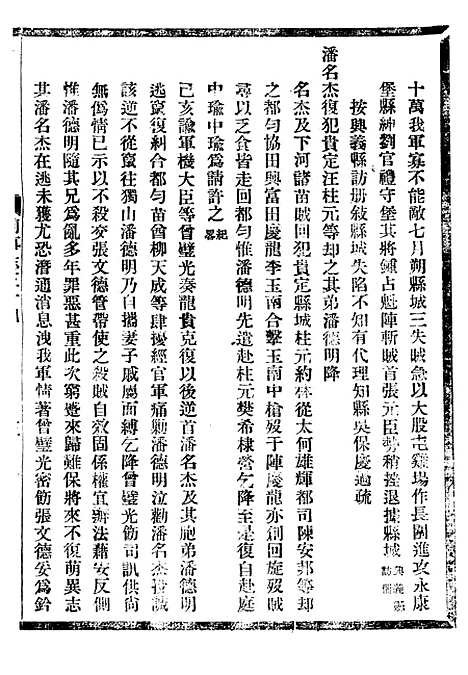 十萬我軍寡不能敵七月朔縣城三失賊急以大股屯雞場作長圍進攻永康
堡縣紳劉官禮守堡其將鍾占魁陣斬賊首張元臣勢稍挫退據縣城興義縣訪冊
按興義縣訪册敍縣城失陷不知有代理知縣吳保慶過疏
潘名杰復犯貴定汪柱元等却之其弟潘德明降
名杰及下河諸苗賊回犯貴定縣城柱元約林從太何雄輝都司陳安邦等却
之都勻協田興富田慶龍李玉南合擊玉南中槍歿于陣慶龍亦創回旋歿賊
尋以乏食皆走回都勻惟潘德明先遣赴柱元樊希棣營乞降至是復自赴庭
中瑜中瑜爲請許之紀畧
己亥諭軍機大臣等曾璧光奏龍貴克復以後逆首潘名杰及其胞弟潘德明
逃竄復糾合都勻苗曾柳天成等肆擾經官軍痛剿潘德明泣勸潘名杰投誠
該逆不從竄往獨山潘德明乃自攜妻子戚屬面縛乞降曾璧光飭司訊供尙
無僞情已示以不殺交張文德管帶使之殺賊自效固係權宜辦法藉安反側
惟潘德明隨其兄爲亂多年罪惡甚重此次窮蹙來歸難保將來不復萌異志
其潘名杰在逃未獲尤恐潛通消息洩我軍情著曾璧光密飭張文德妥爲鈐